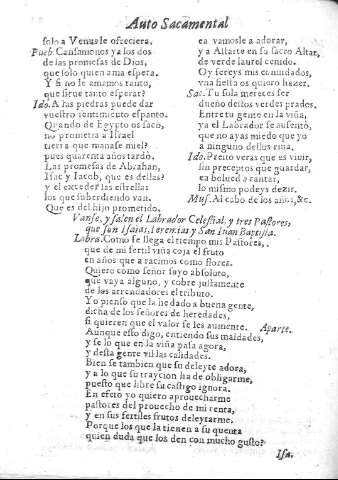 Auto Sacamental
solo a Venus le ofreciera.
Pueb. Cansamonos ya los dos
de las promesas de Dios,
que solo quien ama espera.
Y si no le amamos tanto,
que sirue tanto esperar?
Ido. A las piedras puede dar
vuestro sentimiento espanto.
Quando de Egipto os sacò,
no prometia a Israel
tierra que manase miel?
pues quarenta años tardò.
Las promesas de Abrahan,
Isac y Iacob, que es dellas?
y el exceder las estrellas
los que subcediendo van.
Que es del hijo prometido.
ea vamosle a adorar,
y a Astarte en su sacro Altar,
de verde laurel cenido.
Oy sereys mis combidados,
vna fiesta os quiero hazer.
Sac. Tu sola mereces ser
dueño destos verdes prados.
Entre tu gente en la viña,
ya el Labrador se ausentò,
que no ayas miedo que yo
a ninguno dellos riña.
Ido. Presto veras que es viuir,
sin preceptos que guardar,
ea bolued a cantar,
lo mismo podeys dezir.
Mus. Al cabo de los años, &c.
Vanse, y salen el Labrador Celestial, y tres Pastores,
que son Isaias, Ieremias y San Iuan Baptista.
Labra. Como se llega el tiempo mis Pastores,
que de mi fertil viña coja el fruto
en años que a racimos como flores.
Quiero como señor suyo absoluto,
que vaya alguno, y cobre justamente
de los arrendadores el tributo.
Yo pienso que la he dado a buena gente,
dicha de los señores de heredades,
si quieren que el valor se les aumente. Aparte.
Aunque esso digo, entiendo sus maldades,
y se lo que en la viña pasa agora,
y desta gente vil las calidades.
Bien se tambien que su deleyte adora,
y a lo que su traycion ha de obligarme,
puesto que libre su castigo ignora.
En efeto yo quiero aprouecharme
pastores del prouecho de mi renta,
y en sus fertiles frutos deleytarme.
Porque los que la tienen a su quenta
quien duda que los den con mucho gusto?
Isa.